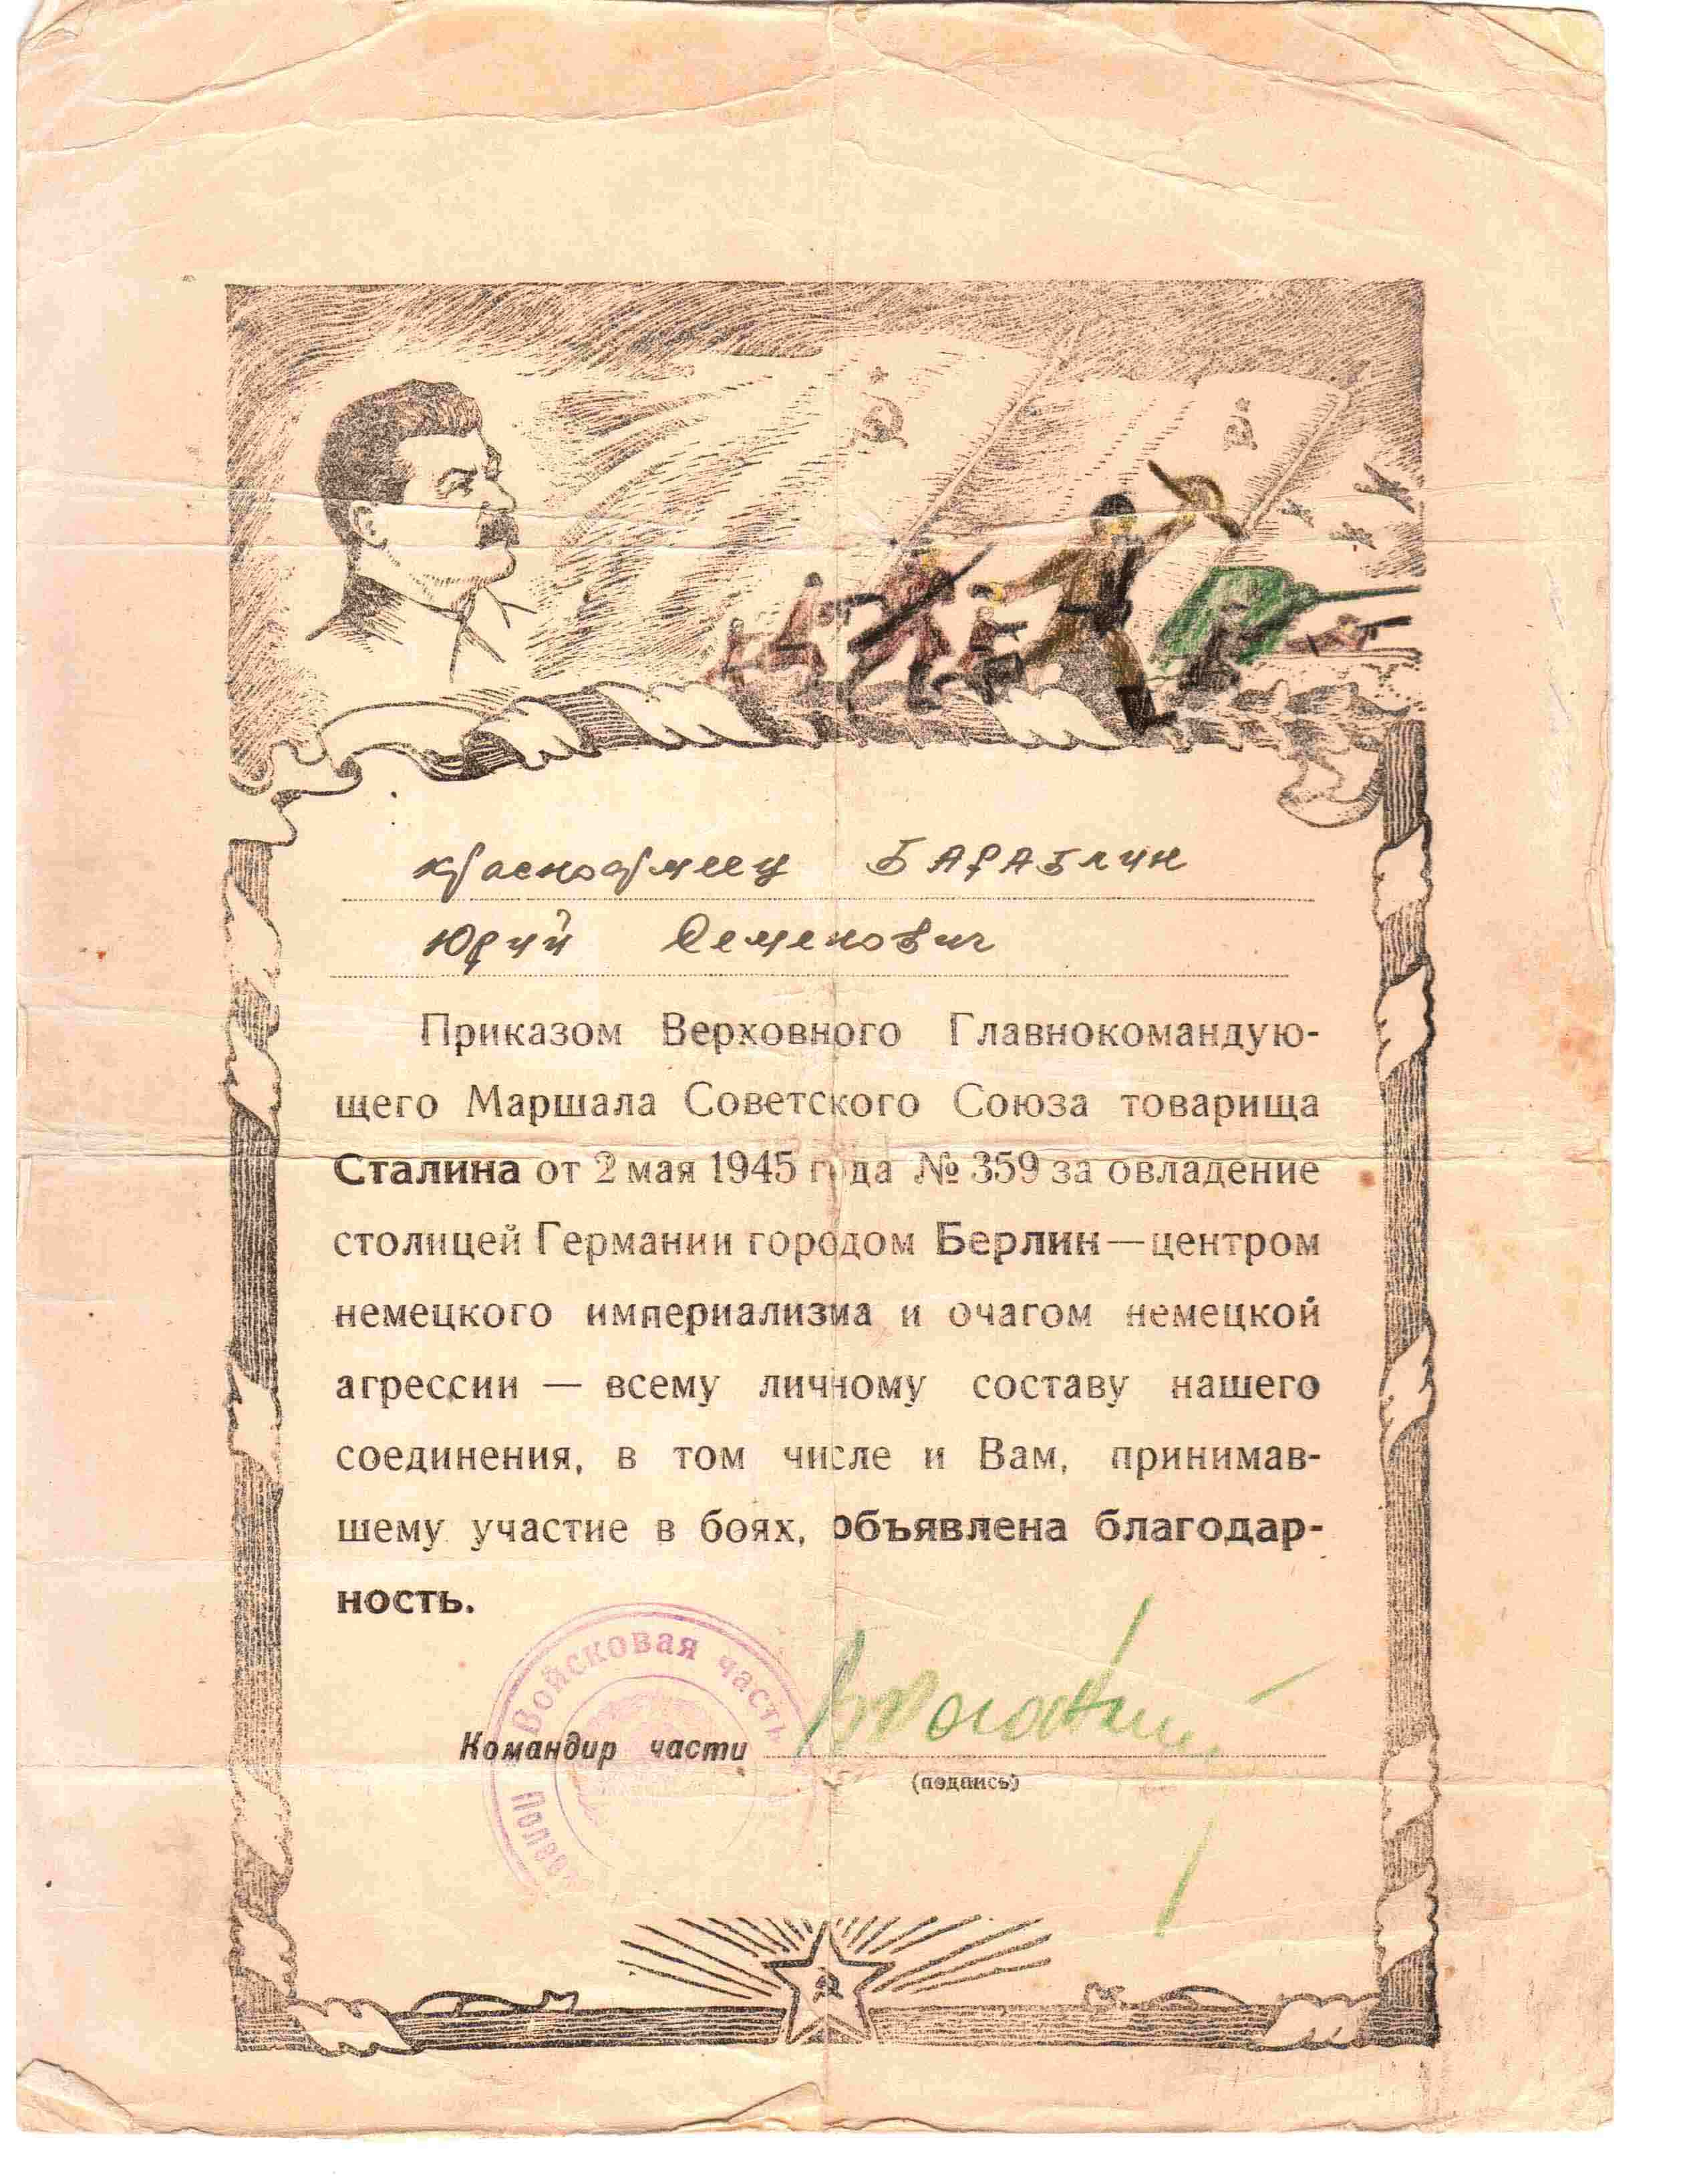 красноармеец БАРАБЛИН
Юрий Семенович
Приказом Верховного Главнокомандую-
щего Маршала Советского Союза товарища
Сталина от 2 мая 1945 года № 359 за овладение
столицей Германии городом Берлин—центром
немецкого империализма и очагом немецкой
агрессии — всему личному составу нашего
соединения, в том числе и Вам, принимав-
шему участие в боях, объявлена благодар-
ность.
Войсковая часть
Командир части
(подпись)